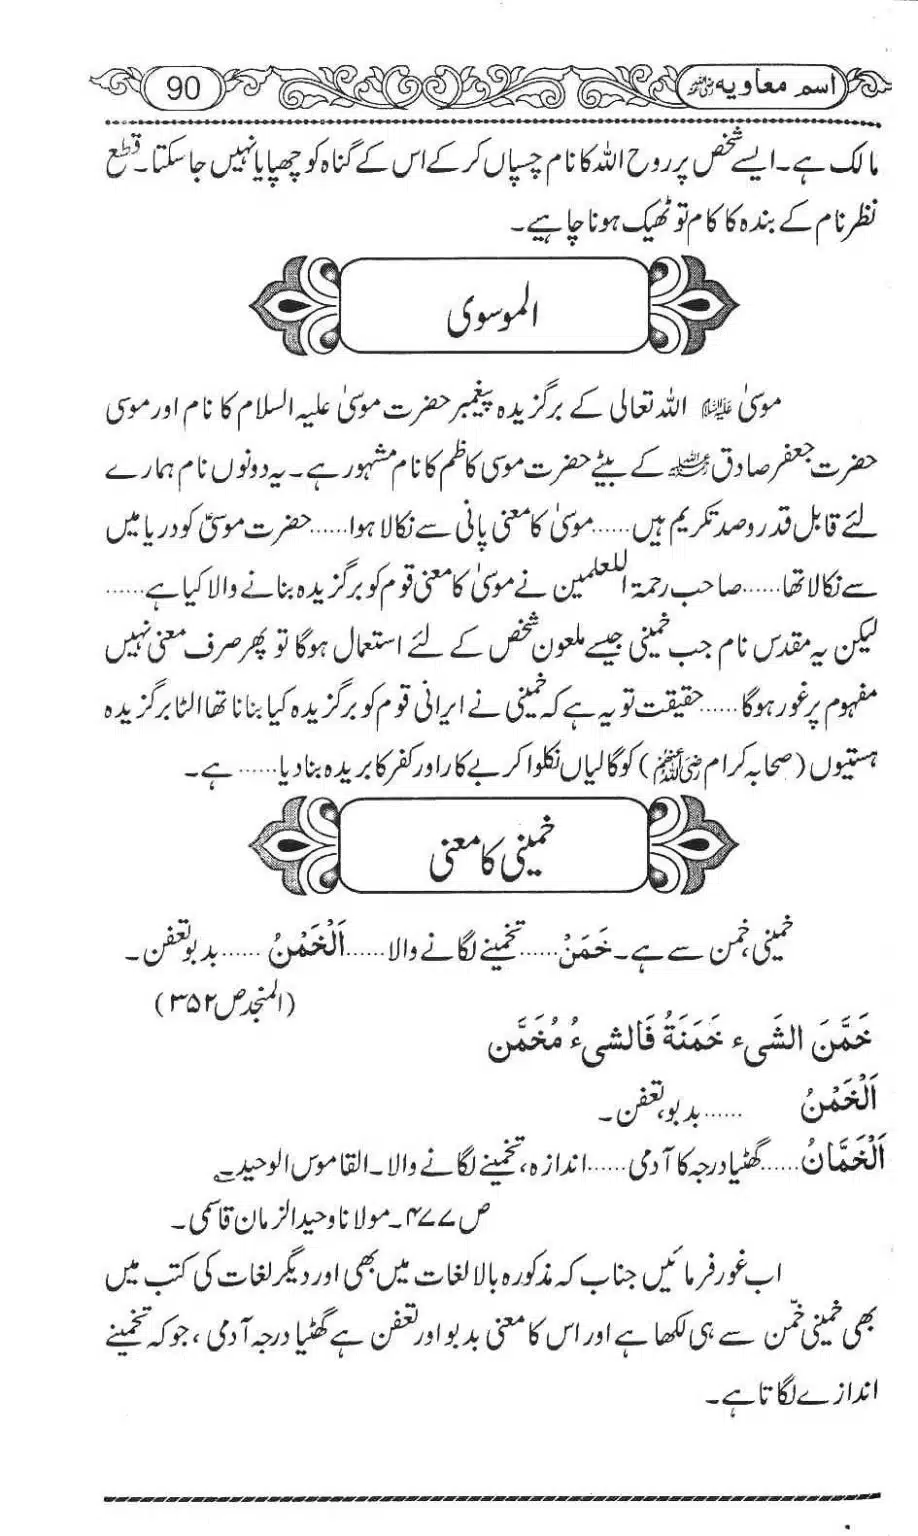 اسم معاویہ رضی اللہ عنہ
90
مالک ہے۔ ایسے شخص پر روح اللہ کا نام چسپاں کر کے اس کے گناہ کو چھپایا نہیں جا سکتا۔ قطع
نظر نام کے بندہ کا کام تو ٹھیک ہونا چاہیے۔
الموسوی
موسیٰ علیہ السلام اللہ تعالی کے برگزیدہ پیغمبر حضرت موسیٰ علیہ السلام کا نام اور موسی
حضرت جعفر صادق رحمۃ اللہ علیہ کے بیٹے حضرت موسی کاظم کا نام مشہور ہے۔ یہ دونوں نام ہمارے
لئے قابل قدر و صد تکریم ہیں......موسیٰ کا معنی پانی سے نکالا ہوا......حضرت موسیٰؑ کو دریا میں
سے نکالا تھا......صاحب رحمۃ اللعلمین نے موسیٰ کا معنی قوم کو برگزیدہ بنانے والا کیا ہے......
لیکن یہ مقدس نام جب خمینی جیسے ملعون شخص کے لئے استعمال ہوگا تو پھر صرف معنی نہیں
مفہوم پر غور ہوگا......حقیقت تو یہ ہے کہ خمینی نے ایرانی قوم کو برگزیدہ کیا بنانا تھا الٹا برگزیدہ
ہستیوں (صحابہ کرام رضی اللہ عنہم) کو گالیاں نکلوا کر بے کار اور کفر کا بریدہ بنا دیا...... ہے۔
خمینی کا معنی
خمینی، خمن سے ہے۔ خَمَنْ......تخمینے لگانے والا......اَلْخَمْنُ......بدبو تعفن۔
(المنجد ص ۳۵۲)
خَمَّنَ الشَیء خَمَنَةُ فَالشیءُ مُخَمَّن
اَلْخَمْنُ ......بدبو، تعفن۔
اَلْخَمَّانُ......گھٹیا درجہ کا آدمی......اندازہ، تخمینے لگانے والا۔ القاموس الوحید
ص ۴۷۷۔ مولانا وحید الزمان قاسمی۔
اب غور فرمائیں جناب کہ مذکورہ بالا لغات میں بھی اور دیگر لغات کی کتب میں
بھی خمینی خمّن سے ہی لکھا ہے اور اس کا معنی بدبو اور تعفن ہے گھٹیا درجہ آدمی، جو کہ تخمینے
اندازے لگاتا ہے۔